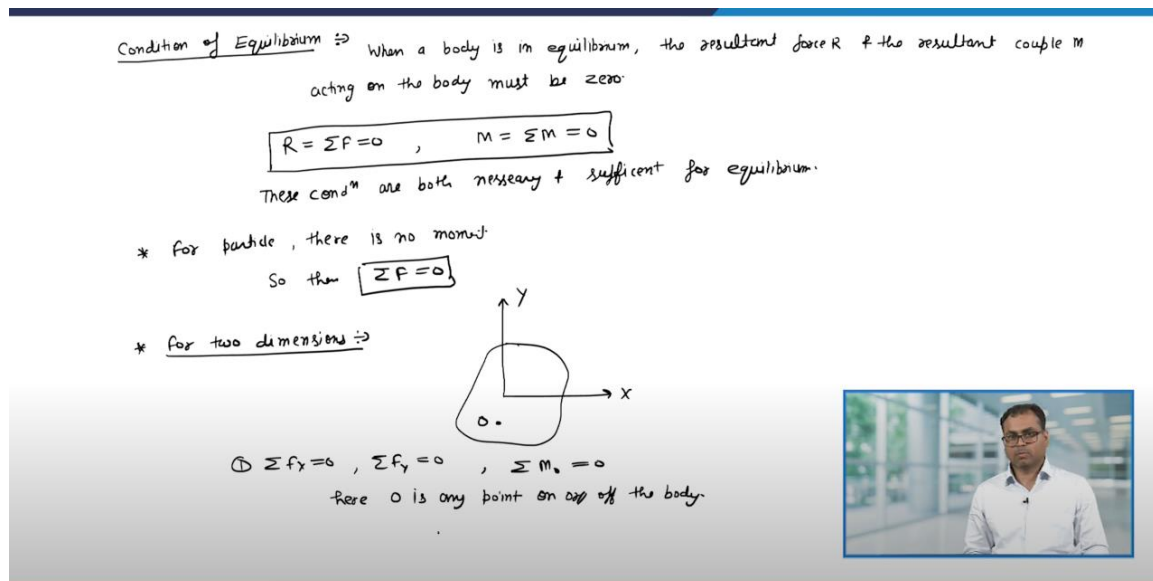 Condition of Equilibrium :⇒ When a body is in equilibrium, the resultant force R & the resultant couple M
acting on the body must be zero.
R = ΣF = 0 , M = ΣM = 0
These condⁿ are both nesseary & sufficent for equilibrium.
* for particle, there is no moment
So then ΣF = 0
* for two dimensions :⇒
Y
X
O.
① Σfx = 0 , Σfy = 0 , ΣMo = 0
here O is any point on or off the body.